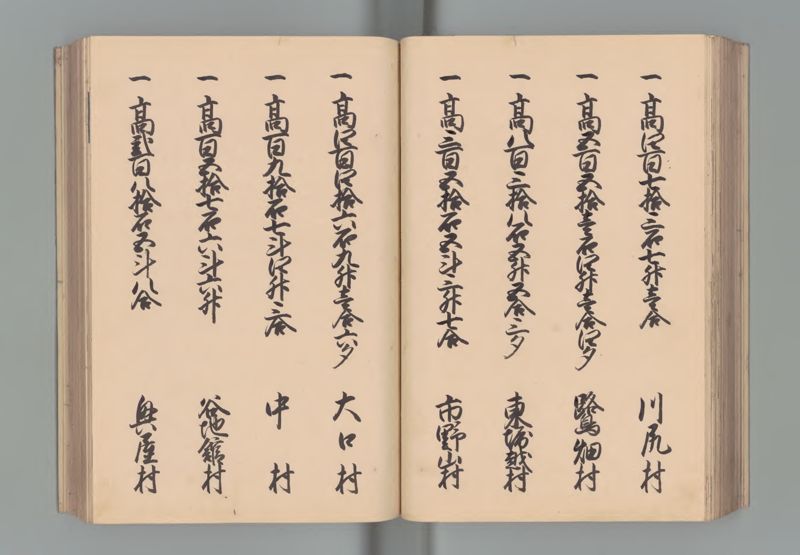 一 高四百七拾三石七升壹合 川尻村
一 高五百五拾壹石四升壹合四夕 鷺畑村
一 高八百三拾八石五升五合三夕 東堀越村
一 高三百五拾石五斗三升七合 市野山村
一 高四百四拾六石九升壹合六夕 大口村
一 高百九拾石七斗四升三合 中村
一 高百五拾七石六斗六升 谷地舘村
一 高貳百八拾石五斗八合 興屋村